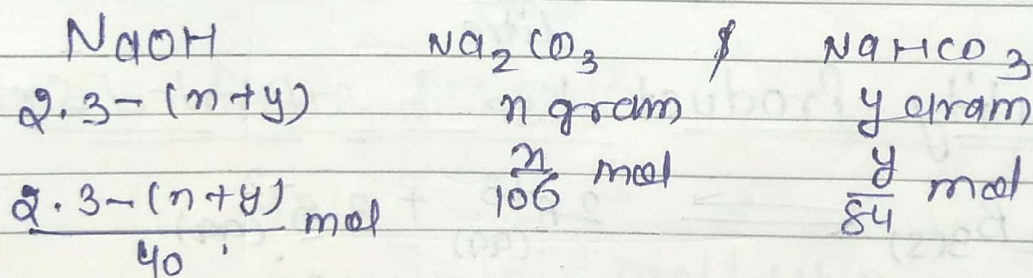 NaOH Na₂CO₃ $ NaHCO₃
2.3-(n+y) n gram y gram
2.3-(n+y)/40 mol n/106 mol y/84 mol